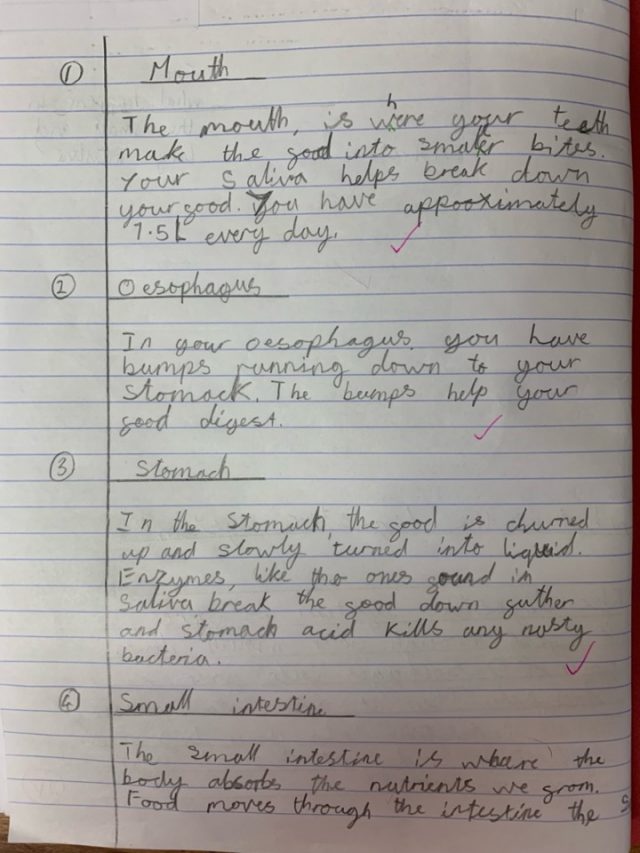 1 Mouth
The mouth, is where your teeth
make the food into smaller bites.
Your Saliva helps break down
your food. You have appooximately
1.5L every day.
2 Oesophagus
In your oesophagus you have
bumps running down to your
stomack. The bumps help your
food digest.
3 Stomach
In the stomach, the food is churned
up and slowly turned into liquid.
Enzymes, like the ones found in
Saliva break the food down futher
and stomach acid kills any nasty
bacteria.
4 Small intestine
The small intestine is where the
body absorbs the nutrients we from.
Food moves through the intestine the